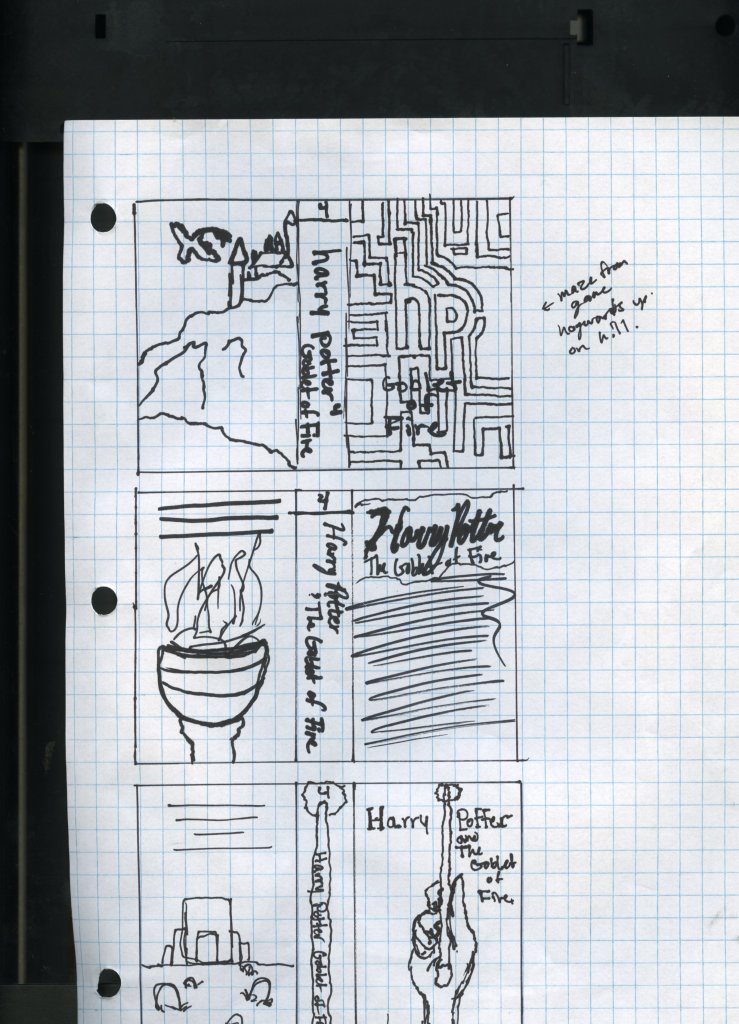 harry potter &
Goblet of Fire
hp
Goblet
of
Fire
← maze from
game
hogwarts up
on hill.
Harry Potter
& The Goblet of Fire
Harry Potter
The Goblet of Fire
J
Harry Potter Goblet of F
Harry Potter
and
The
Goblet
of
Fire.